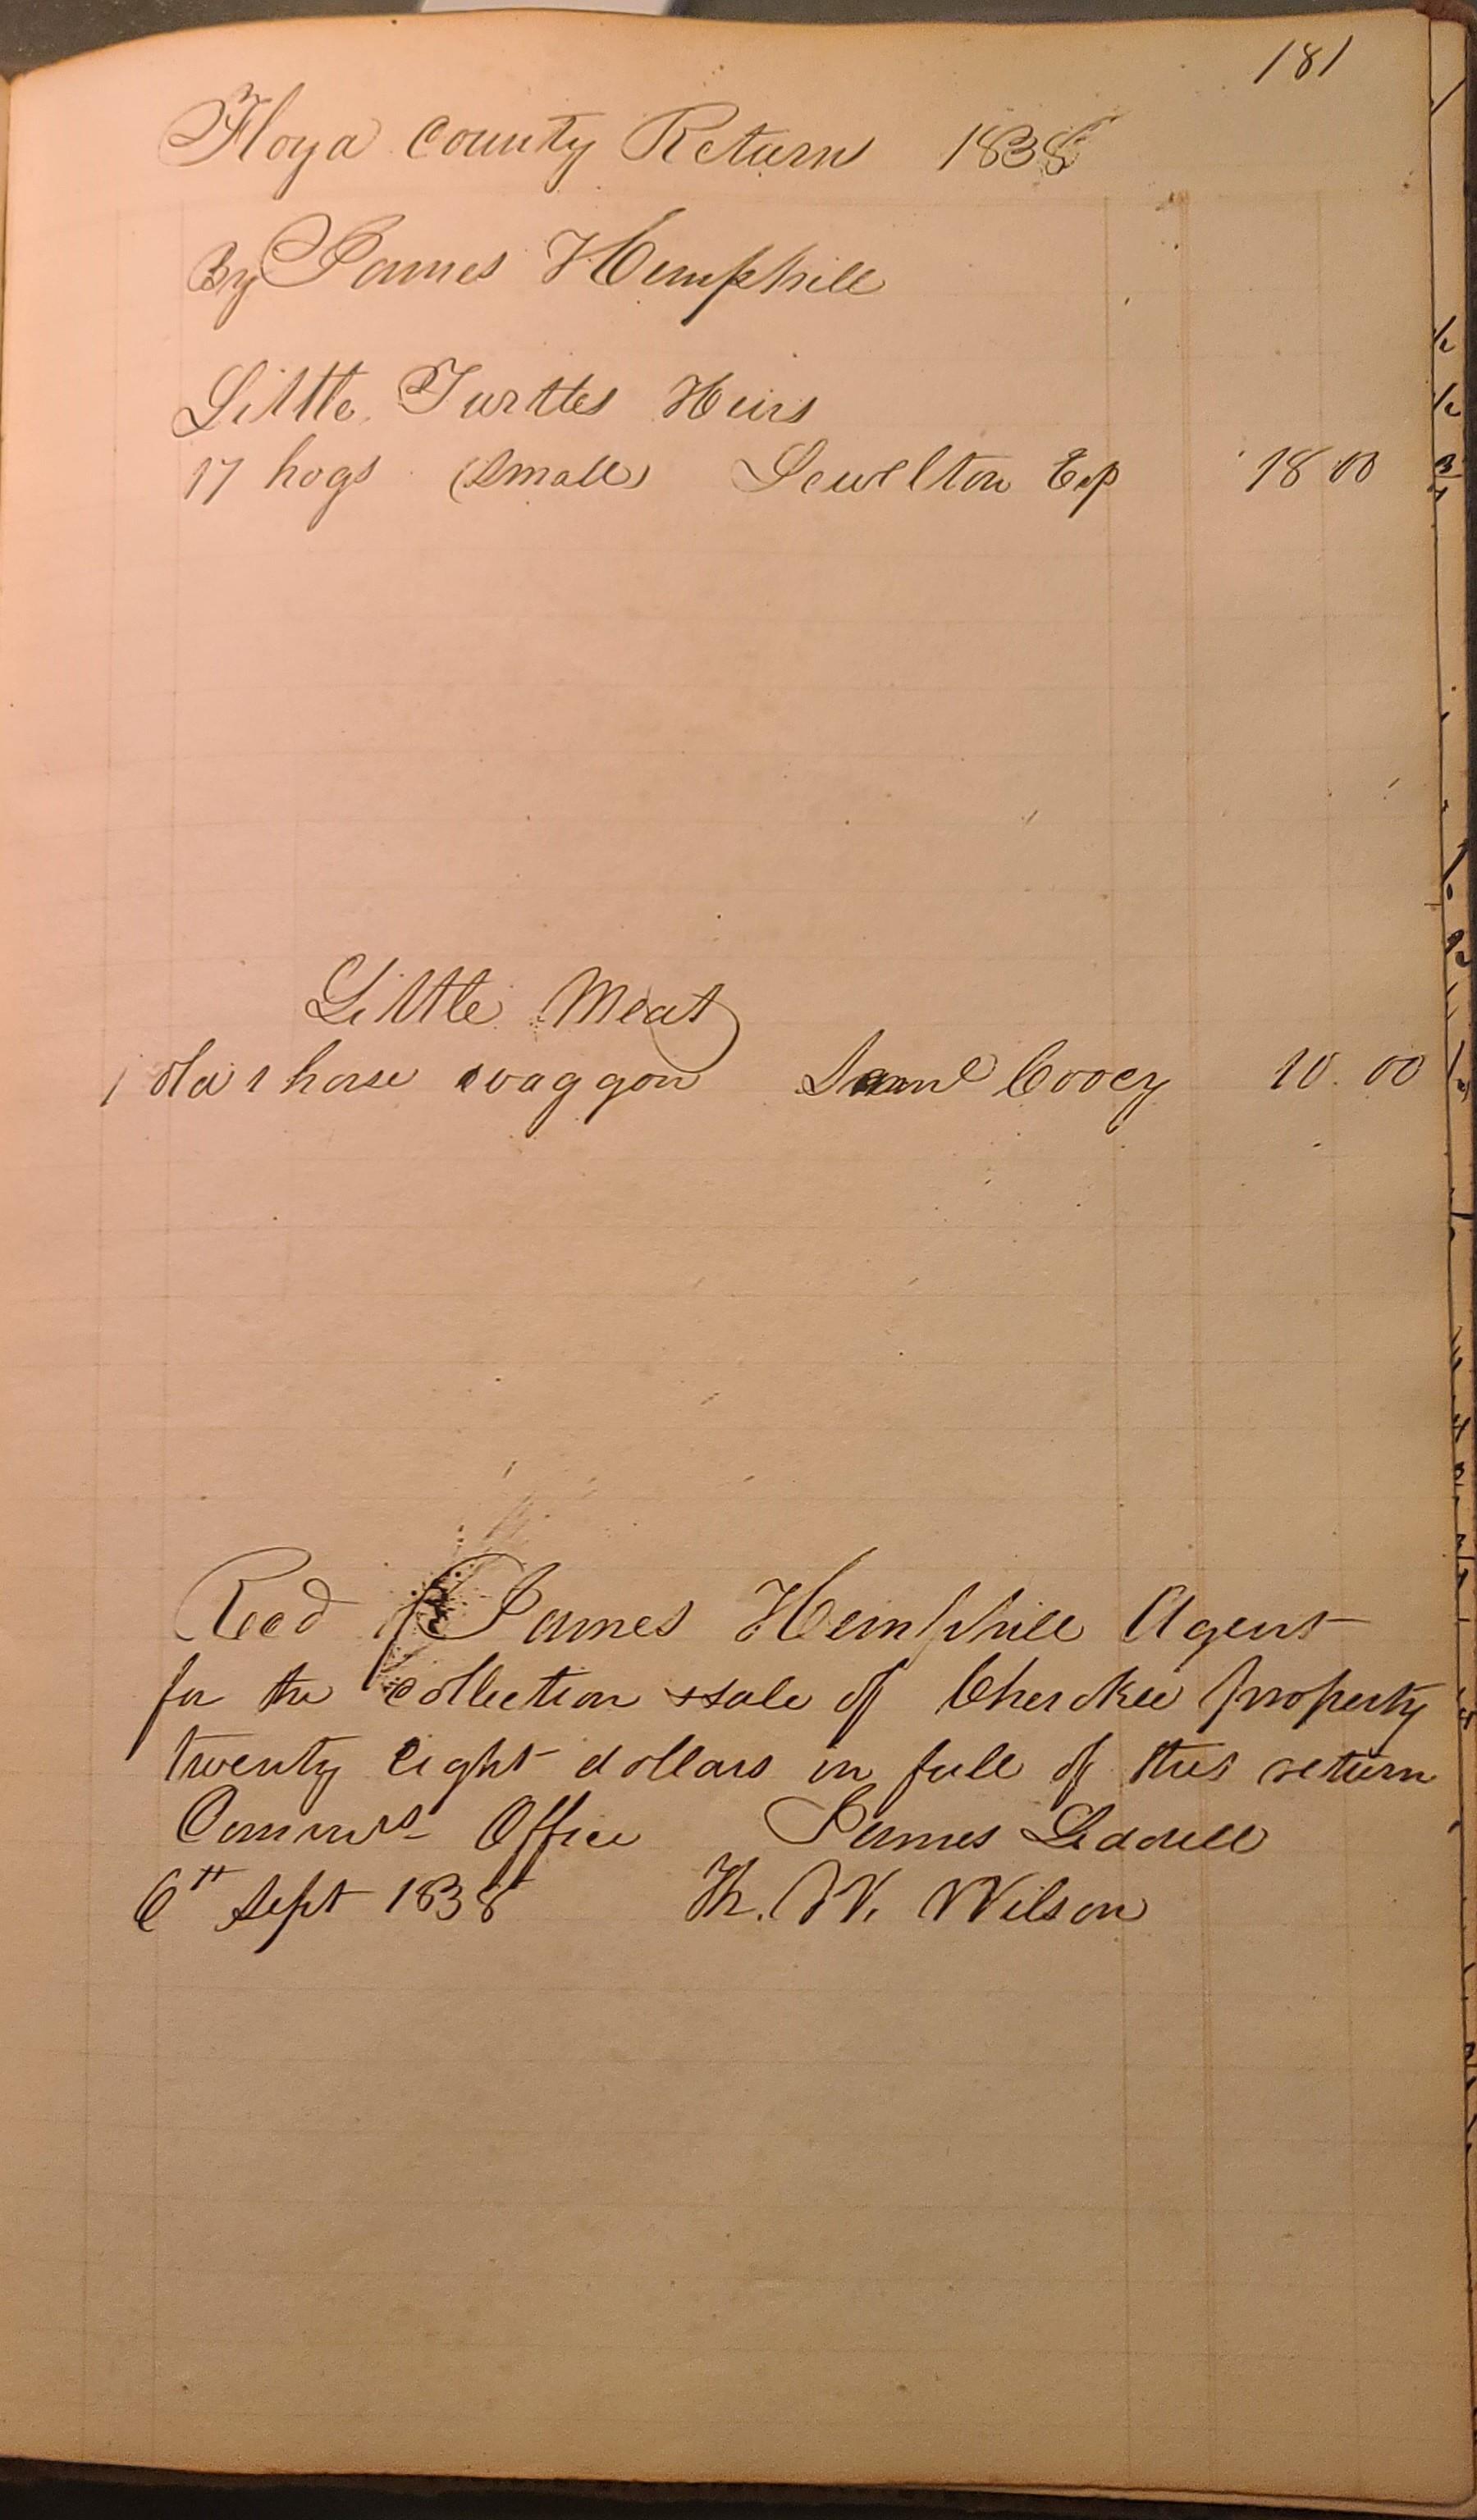 181
Floyd County Return 1838
By James Hemphill
Little Turtles Heirs
17 hogs (small) Lewelton Esp 18 00
Little Meat
1 old 1 horse waggon Saml Cooey 10.00
Recd of James Hemphill Agent
for the collection & sale of Cherokee property
twenty eight dollars in full of this return
Commrs Office James Liddell
6th Sept 1838 Th. W. Wilson